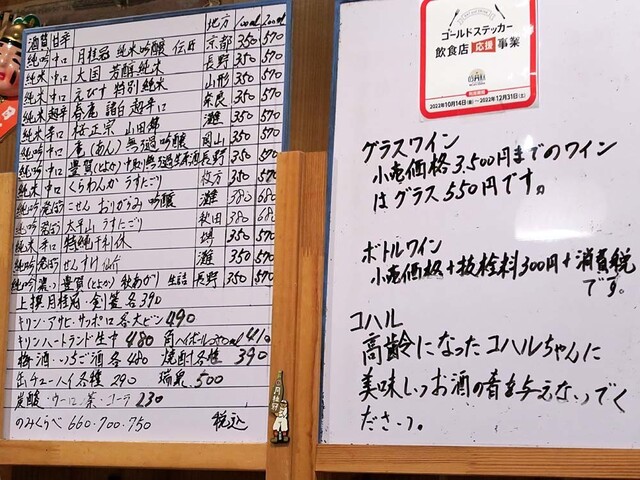 酒質 甘辛 地方 100ml 200ml
純吟 中口 月桂冠 純米吟醸 伝匠 京都 350 570
純米 中口 大国 芳醇純米 長野 350 570
純米 中口 えびす 特別純米 山形 350 570
純米 超辛 春鹿 超辛口 奈良 350 570
純米 辛口 桜正宗 山田錦 灘 350 570
純吟 中口 庵(あん) 無過 吟醸 岡山 350 570
純吟 中口 豊賀(とよか) 中取り無過生原酒 長野 350 570
純米 中口 くらわんか うすにごり 枚方 350 570
純吟 発泡 こせん おりがらみ 吟醸 灘 380 680
純吟 発泡 太平山 うすにごり 秋田 380 680
純米 辛口 特純 千利休 堺 350 570
純吟 発泡 せんすけ 灘 350 570
純吟 濃い 豊賀(とよか) 秋あがり 生詰 長野 350 570
上撰 月桂冠・剣菱 各390
キリン・アサヒ・サッポロ 各大ビン 490
キリンハートランド生中 480 角ハイボール 410
梅酒・いちご酒 各480 焼酎各種 390
缶チューハイ各種 290 瑞泉 500
炭酸・ウーロン茶・コーラ 230
のみくらべ 660・700・750 税込
月桂冠
ゴールドステッカー
飲食店 応援 事業
OSAKA
2022年10月14日(金)〜2022年12月31日(土)
グラスワイン
小売価格3,500円までのワイン
はグラス550円です。
ボトルワイン
小売価格+抜栓料300円+消費税
です。
コハル
高齢になったコハルちゃんに
美味しいお酒の肴を与えないでく
ださい。